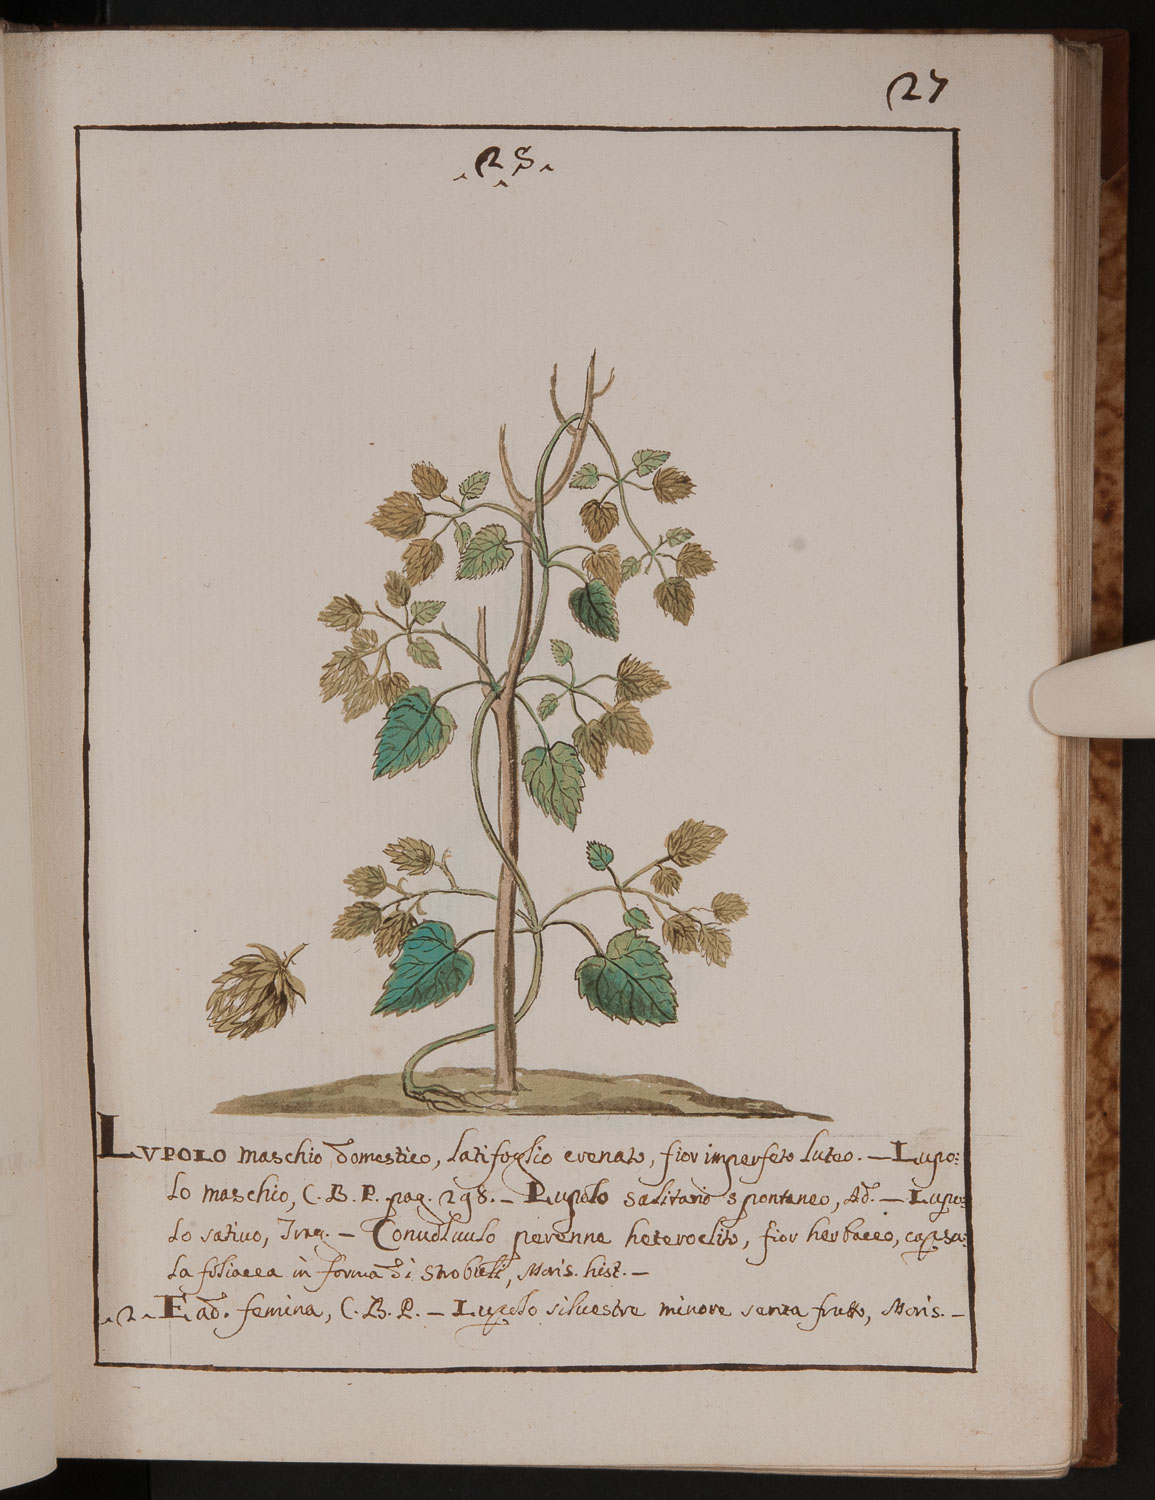 27
.28.
LVPOLO maschio domestico, latifoglio crenato, fior imperfeto luteo. — Lupo:
lo maschio, C. B. P. pag. 298. — Lupolo salitario spontaneo, Ad. — Lupo:
lo satiuo, Trag. — Conuoluulo perenne heteroclito, fior herbaceo, capsu:
la foliacea in forma di strobuli, Moris. hist. —
.2. Ead. femina, C. B. P. — Lupolo siluestre minore senza frutto, Moris. —